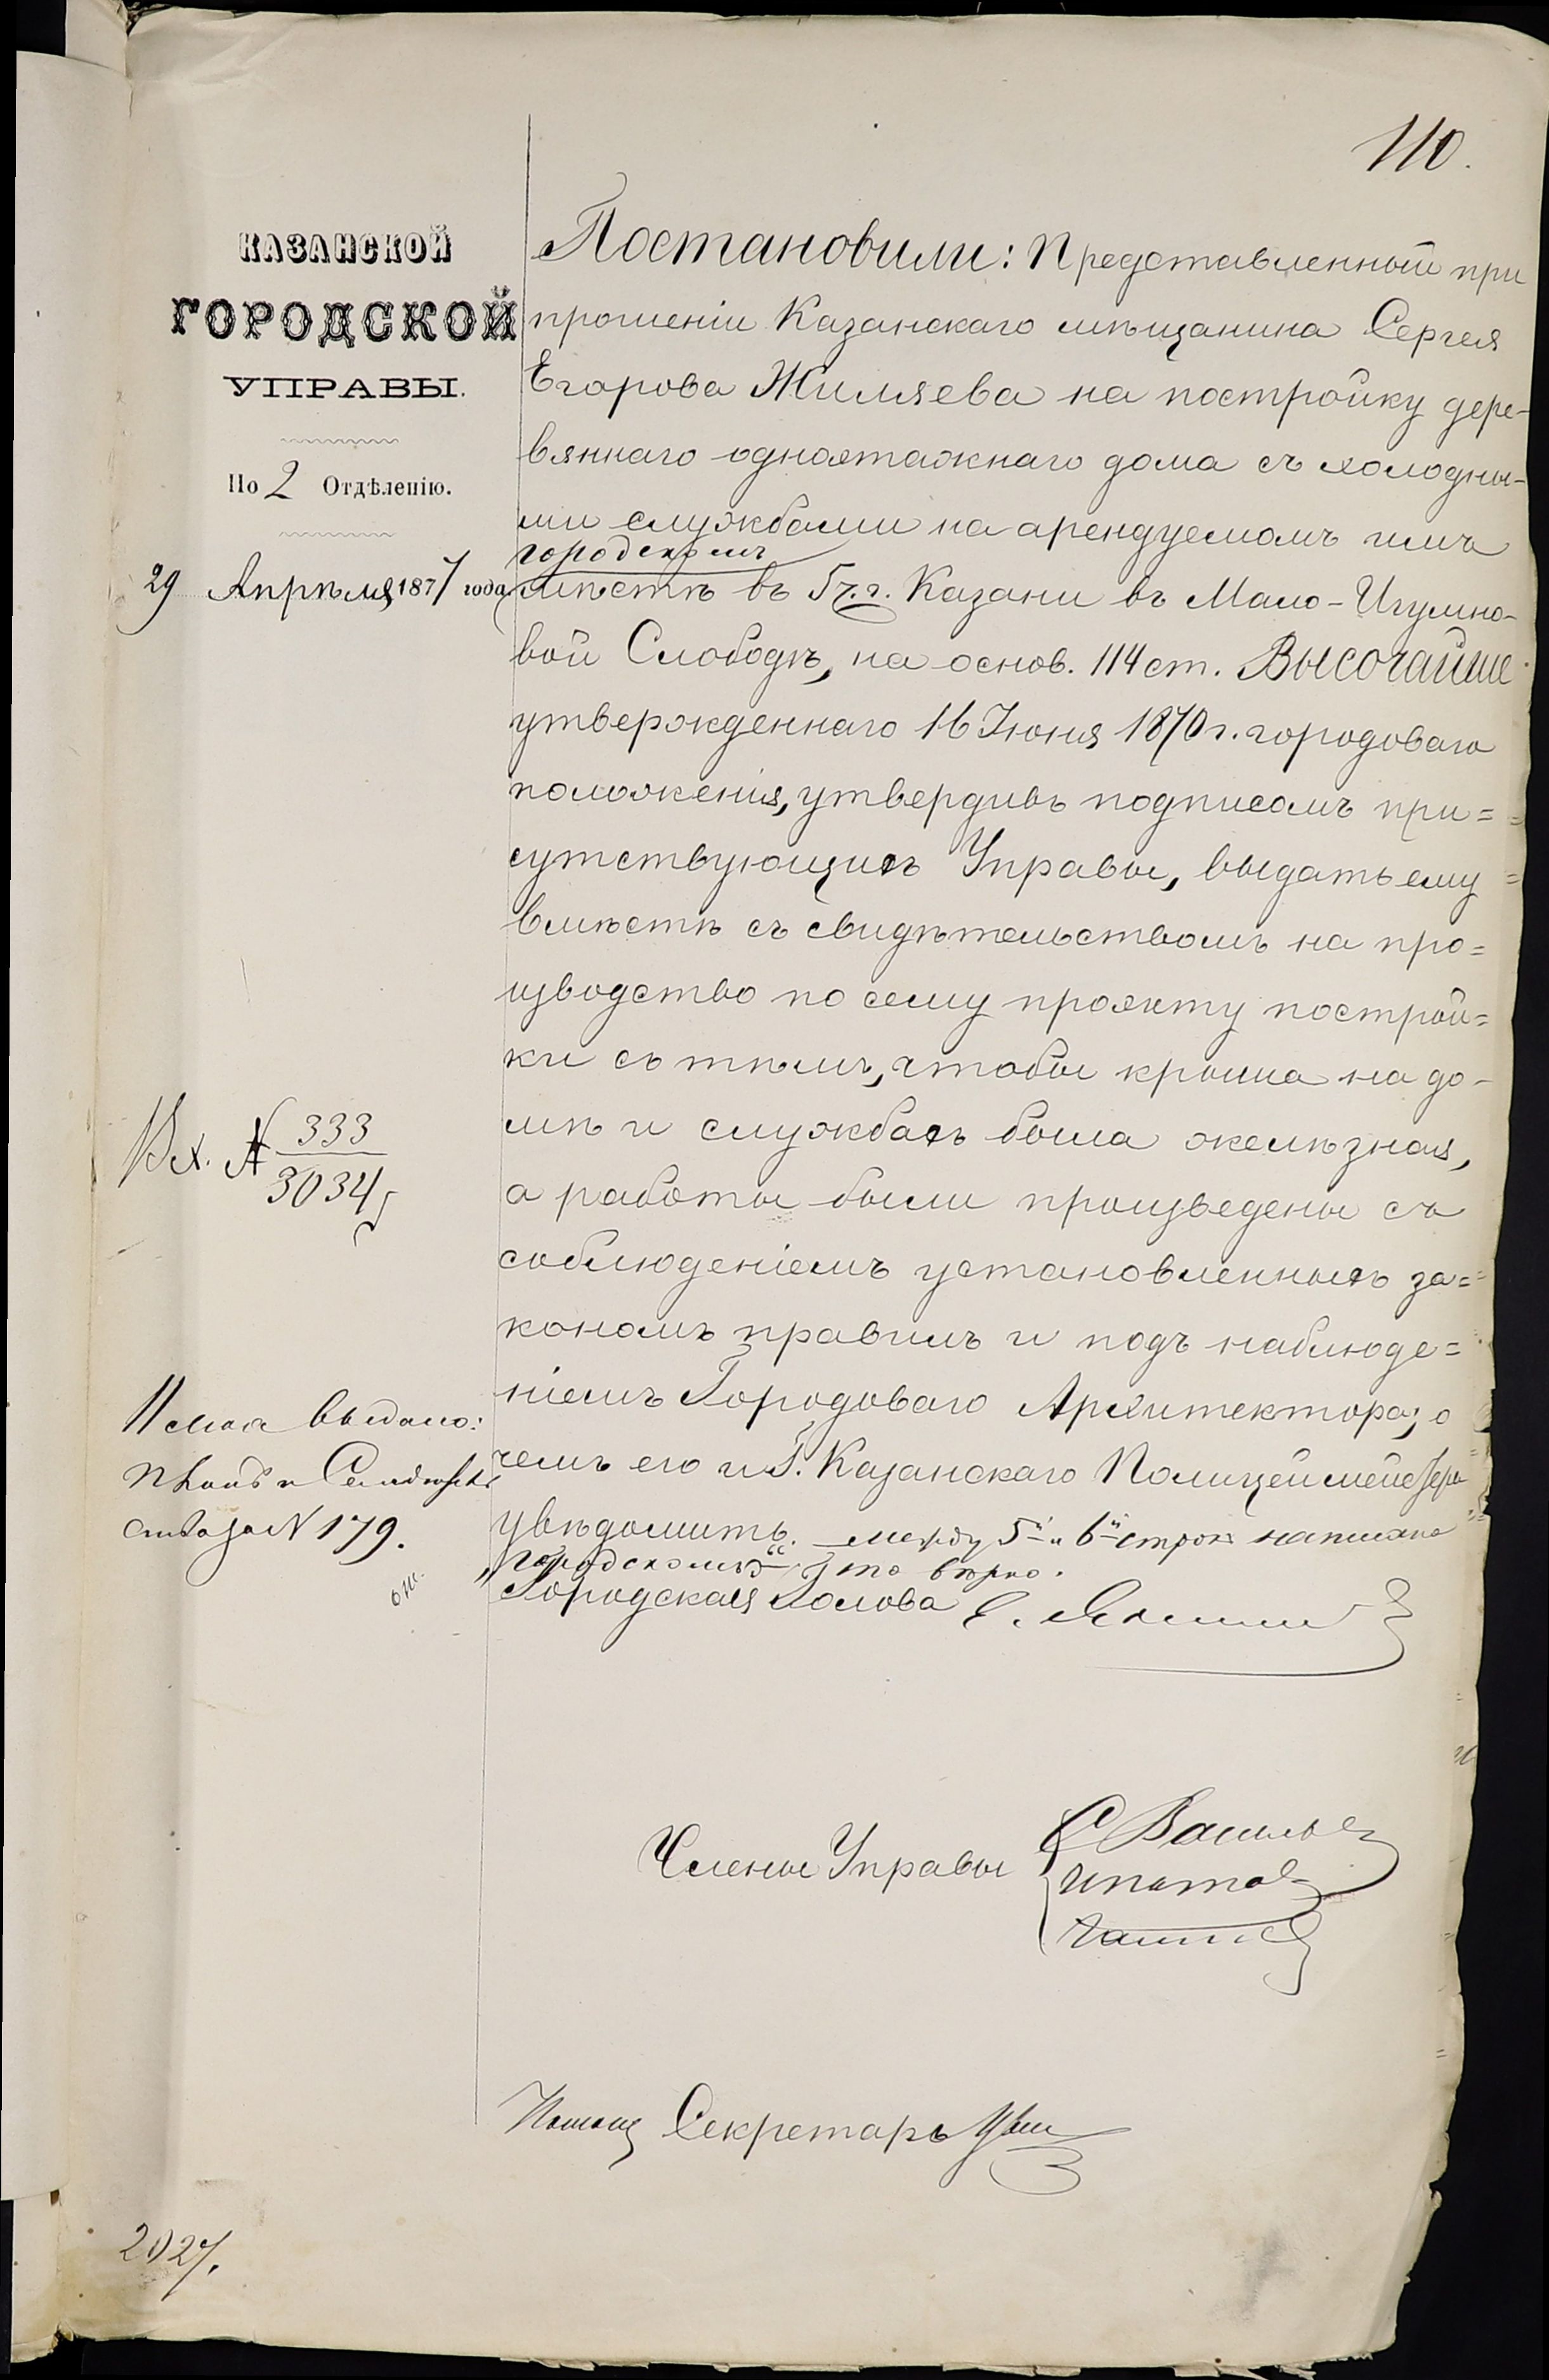 110.
КАЗАНСКОЙ
ГОРОДСКОЙ
УПРАВЫ.
По 2 Отдѣленію.
29 Апрѣля 1877 года
Постановили: Представленный при
прошеніи Казанскаго мѣщанина Сергея
Егорова Жиляева на постройку дере-
вяннаго одноэтажнаго дома съ холодны-
ми службами на арендуемомъ имъ
городскомъ
мѣстѣ въ 5 ч. г. Казани въ Мало-Игумно-
вой Слободѣ, на основ. 114 ст. ВЫСОЧАЙШЕ
утвержденнаго 16 Іюня 1870 г. городоваго
положенія, утвердивъ подписомъ при=
сутствующихъ Управы, выдать ему
вмѣстѣ съ свидѣтельствомъ на про=
изводство по сему проэкту построй=
ки съ тѣмъ, чтобы крыша на до-
мѣ и службахъ была желѣзная,
а работы были произведены съ
соблюденіемъ установленныхъ за=
кономъ правилъ и подъ наблюде=
ніемъ Городоваго Архитектора; о
чемъ его и Г. Казанскаго Полицеймейстера
увѣдомить. между 5й и 6й строк написано
„городскомъ“ это вѣрно.
Городская Голова
Члены Управы
С Васильев
Ипатов
Помощ Секретарь
Вх. № 333
3034
выдано:
за N 179.
2027.